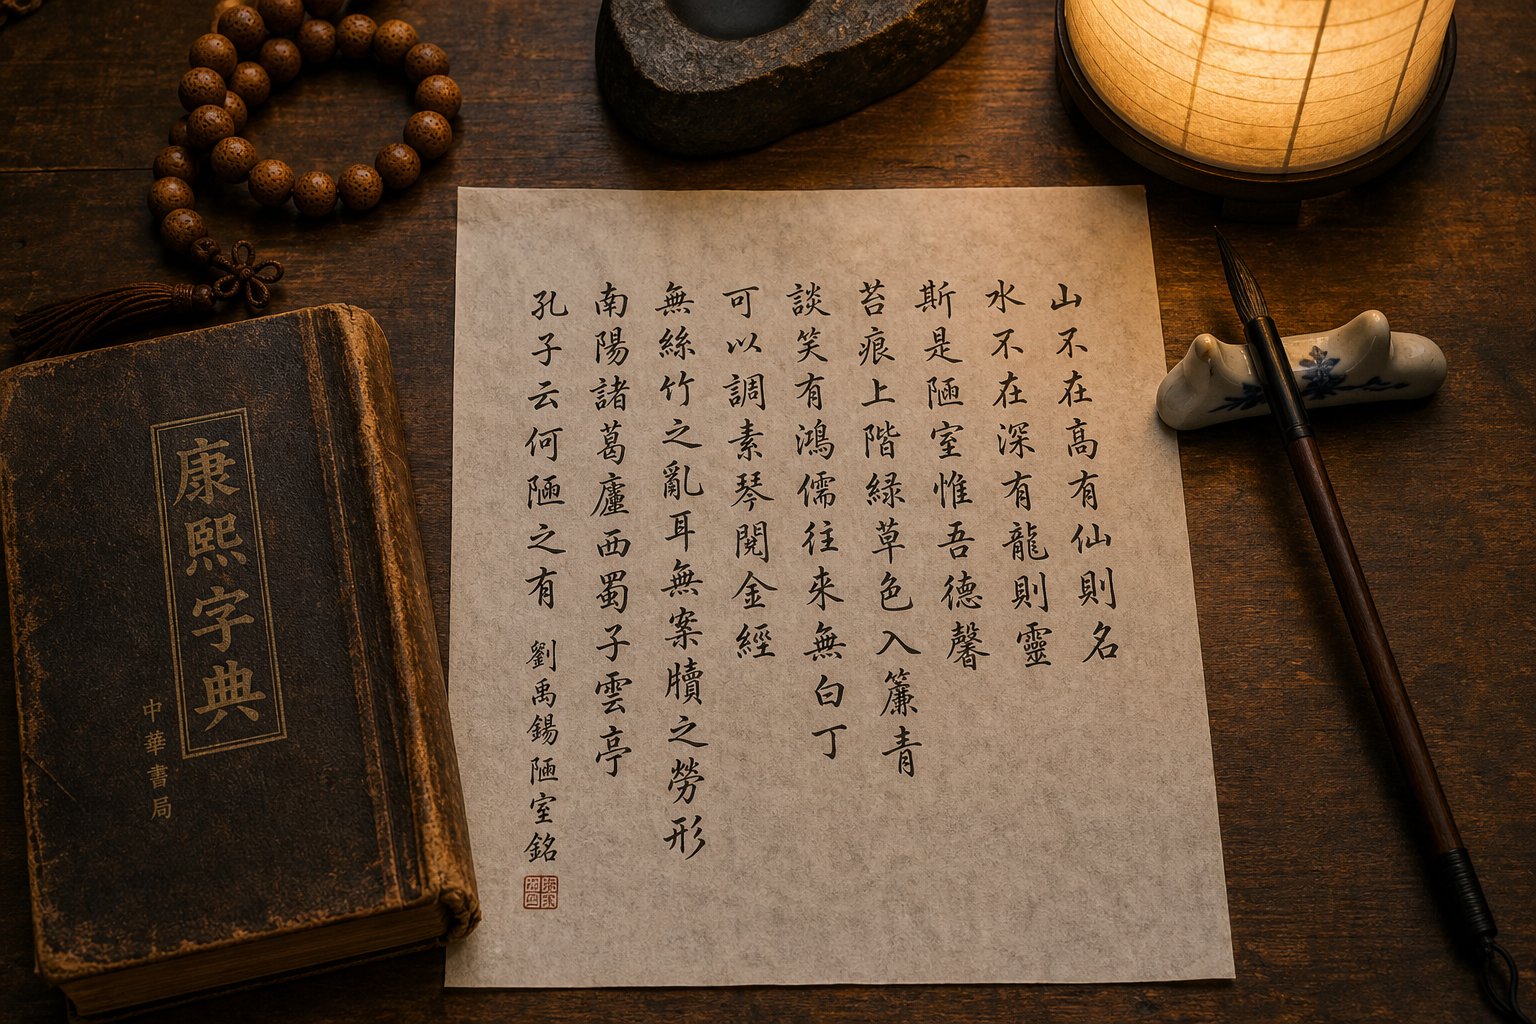 山不在高有仙則名
水不在深有龍則靈
斯是陋室惟吾德馨
苔痕上階緑草色入簾青
談笑有鴻儒往來無白丁
可以調素琴閱金經
無絲竹之亂耳無案牘之勞形
南陽諸葛廬西蜀子雲亭
孔子云何陋之有
劉禹錫陋室銘
康熙字典
中華書局